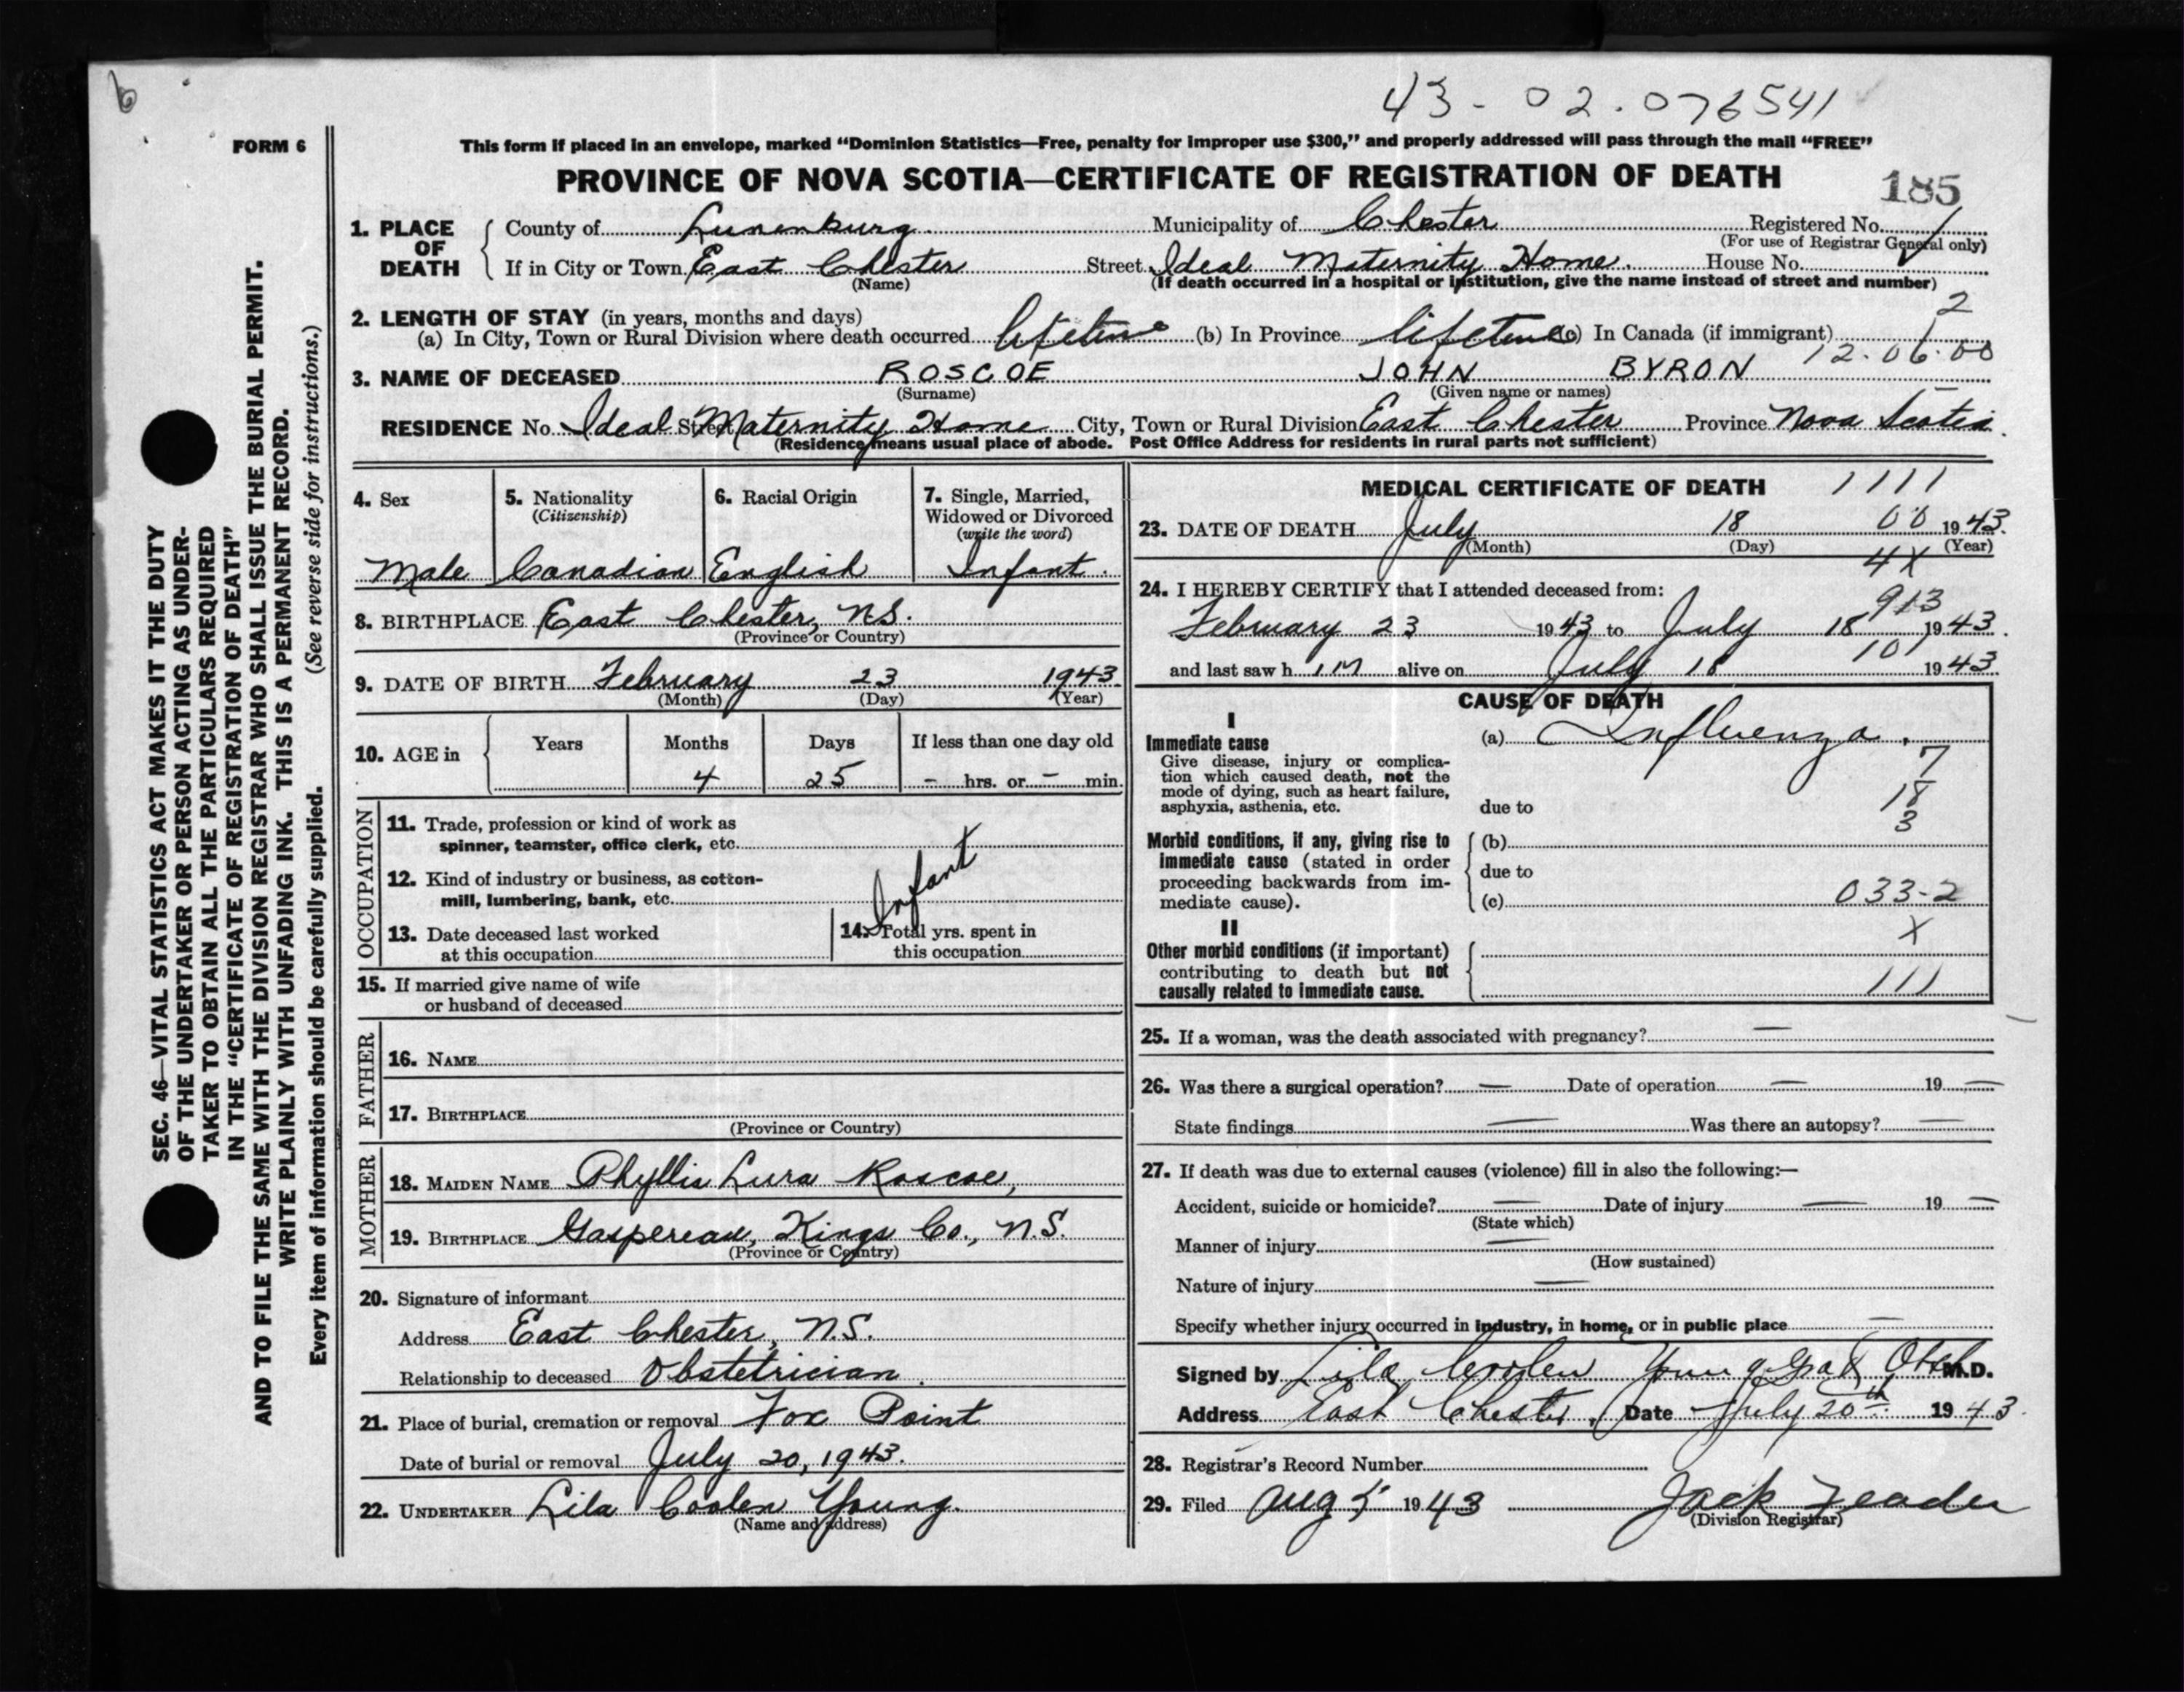 6
43-02.076541
FORM 6
This form if placed in an envelope, marked “Dominion Statistics—Free, penalty for improper use $300,” and properly addressed will pass through the mail “FREE”
PROVINCE OF NOVA SCOTIA—CERTIFICATE OF REGISTRATION OF DEATH
185
1. PLACE OF DEATH
County of Lunenburg Municipality of Chester Registered No.
(For use of Registrar General only)
If in City or Town East Chester Street Ideal Maternity Home. House No.
(Name) (If death occurred in a hospital or institution, give the name instead of street and number)
2. LENGTH OF STAY (in years, months and days)
2
(a) In City, Town or Rural Division where death occurred lifetime (b) In Province lifetime (c) In Canada (if immigrant)
12.06.00
3. NAME OF DECEASED ROSCOE JOHN BYRON
(Surname) (Given name or names)
RESIDENCE No. Ideal Street Maternity Home City, Town or Rural Division East Chester Province Nova Scotia.
(Residence means usual place of abode. Post Office Address for residents in rural parts not sufficient)
4. Sex
Male
5. Nationality
(Citizenship)
Canadian
6. Racial Origin
English
7. Single, Married,
Widowed or Divorced
(write the word)
Infant.
8. BIRTHPLACE East Chester, N.S.
(Province or Country)
9. DATE OF BIRTH February 23 1943
(Month) (Day) (Year)
10. AGE in
Years Months Days If less than one day old
4 25 – hrs. or – min.
OCCUPATION
11. Trade, profession or kind of work as
spinner, teamster, office clerk, etc.
12. Kind of industry or business, as cotton-
mill, lumbering, bank, etc.
Infant
13. Date deceased last worked
at this occupation
14. Total yrs. spent in
this occupation
15. If married give name of wife
or husband of deceased
FATHER
16. NAME
17. BIRTHPLACE
(Province or Country)
MOTHER
18. MAIDEN NAME Phyllis Lura Roscoe,
19. BIRTHPLACE Gaspereau, Kings Co., N.S.
(Province or Country)
20. Signature of informant
Address East Chester, N.S.
Relationship to deceased Obstetrician.
21. Place of burial, cremation or removal Fox Point
Date of burial or removal July 20, 1943.
22. UNDERTAKER Lila Coolen Young.
(Name and address)
MEDICAL CERTIFICATE OF DEATH
1111
23. DATE OF DEATH July 18 00 1943.
(Month) (Day) (Year)
4X
24. I HEREBY CERTIFY that I attended deceased from:
913
February 23 1943 to July 18 1943.
101
and last saw h im alive on July 18 1943
CAUSE OF DEATH
I
Immediate cause
Give disease, injury or complica-
tion which caused death, not the
mode of dying, such as heart failure,
asphyxia, asthenia, etc.
(a) Influenza.
7
18
3
due to
Morbid conditions, if any, giving rise to
immediate cause (stated in order
proceeding backwards from im-
mediate cause).
(b)
due to
(c) 033-2
X
II
Other morbid conditions (if important)
contributing to death but not
causally related to immediate cause.
111
25. If a woman, was the death associated with pregnancy? —
26. Was there a surgical operation? — Date of operation — 19 —
State findings — Was there an autopsy? —
27. If death was due to external causes (violence) fill in also the following:—
Accident, suicide or homicide? — Date of injury — 19 —
(State which)
Manner of injury —
(How sustained)
Nature of injury —
Specify whether injury occurred in industry, in home, or in public place —
Signed by Lila Coolen Young M.D.
Address East Chester. Date July 20th 1943.
28. Registrar's Record Number
29. Filed Aug 5 1943 Jack
(Division Registrar)
SEC. 46—VITAL STATISTICS ACT MAKES IT THE DUTY
OF THE UNDERTAKER OR PERSON ACTING AS UNDER-
TAKER TO OBTAIN ALL THE PARTICULARS REQUIRED
IN THE “CERTIFICATE OF REGISTRATION OF DEATH”
AND TO FILE THE SAME WITH THE DIVISION REGISTRAR WHO SHALL ISSUE THE BURIAL PERMIT.
WRITE PLAINLY WITH UNFADING INK. THIS IS A PERMANENT RECORD.
Every item of information should be carefully supplied. (See reverse side for instructions.)